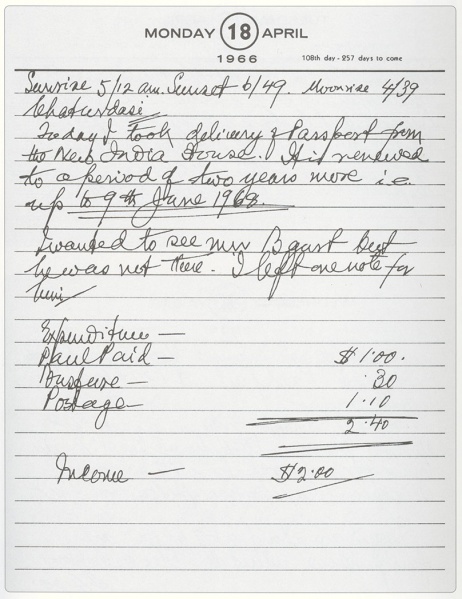 MONDAY 18 APRIL
1966
108th day - 257 days to come
Sunrise 5/12 a.m. Sunset 6/49. Moonrise 4/39
Chaturdasi
Today I took delivery of Passport from
the New India House. It is renewed
to a period of two years more i.e.
up to 9th June 1968.
I wanted to see Mr. but
he was not there. I left one note for
him
Expenditure —
Paul Paid — $1.00.
Busfare — .30
Postage — 1.10
2.40
Income — $2.00